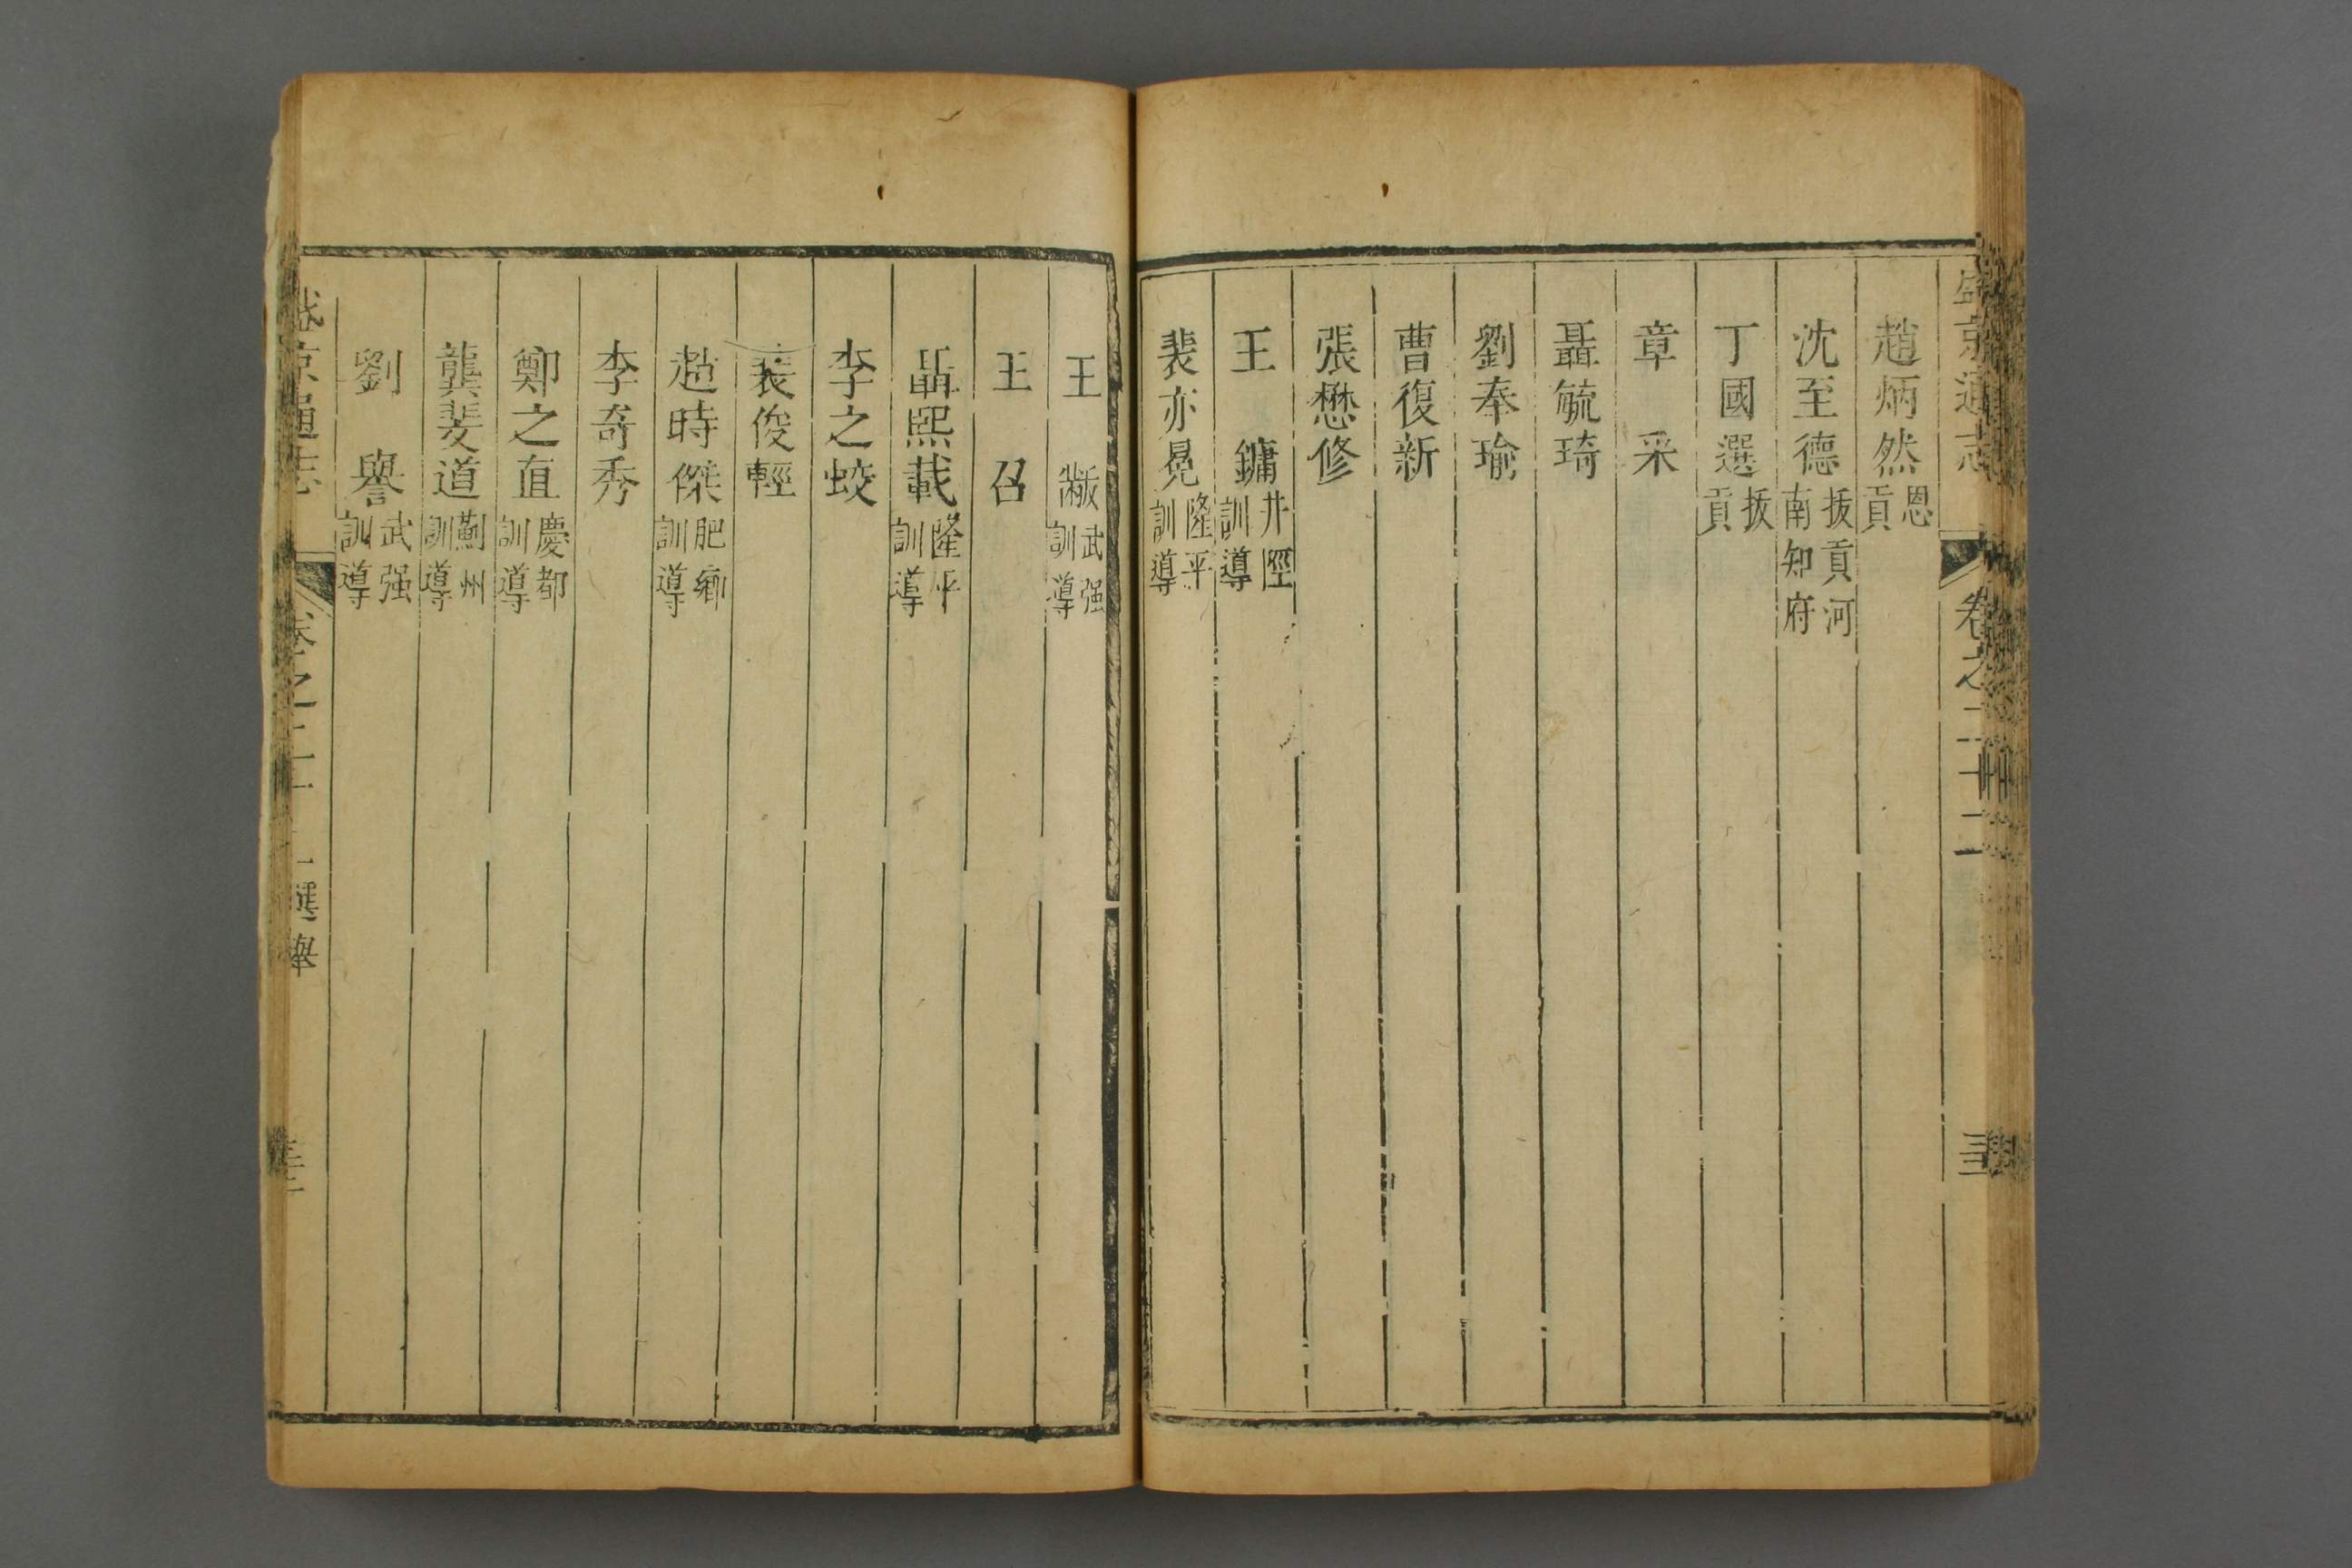 盛京通志 卷之二十二
趙炳然 恩貢
沈至德 拔貢河南知府
丁國選 拔貢
章 采
聶毓琦
劉奉瑜
曹復新
張懋修
王 鏞 井陘訓導
裴亦晃 隆平訓導
王 黻 武强訓導
王 召
聶熙載 隆平訓導
李之蛟
裴俊輕
趙時傑 肥鄉訓導
李奇秀
鄭之直 慶都訓導
龔斐道 薊州訓導
劉 譽 武强訓導
盛京通志 卷之二十二 選舉